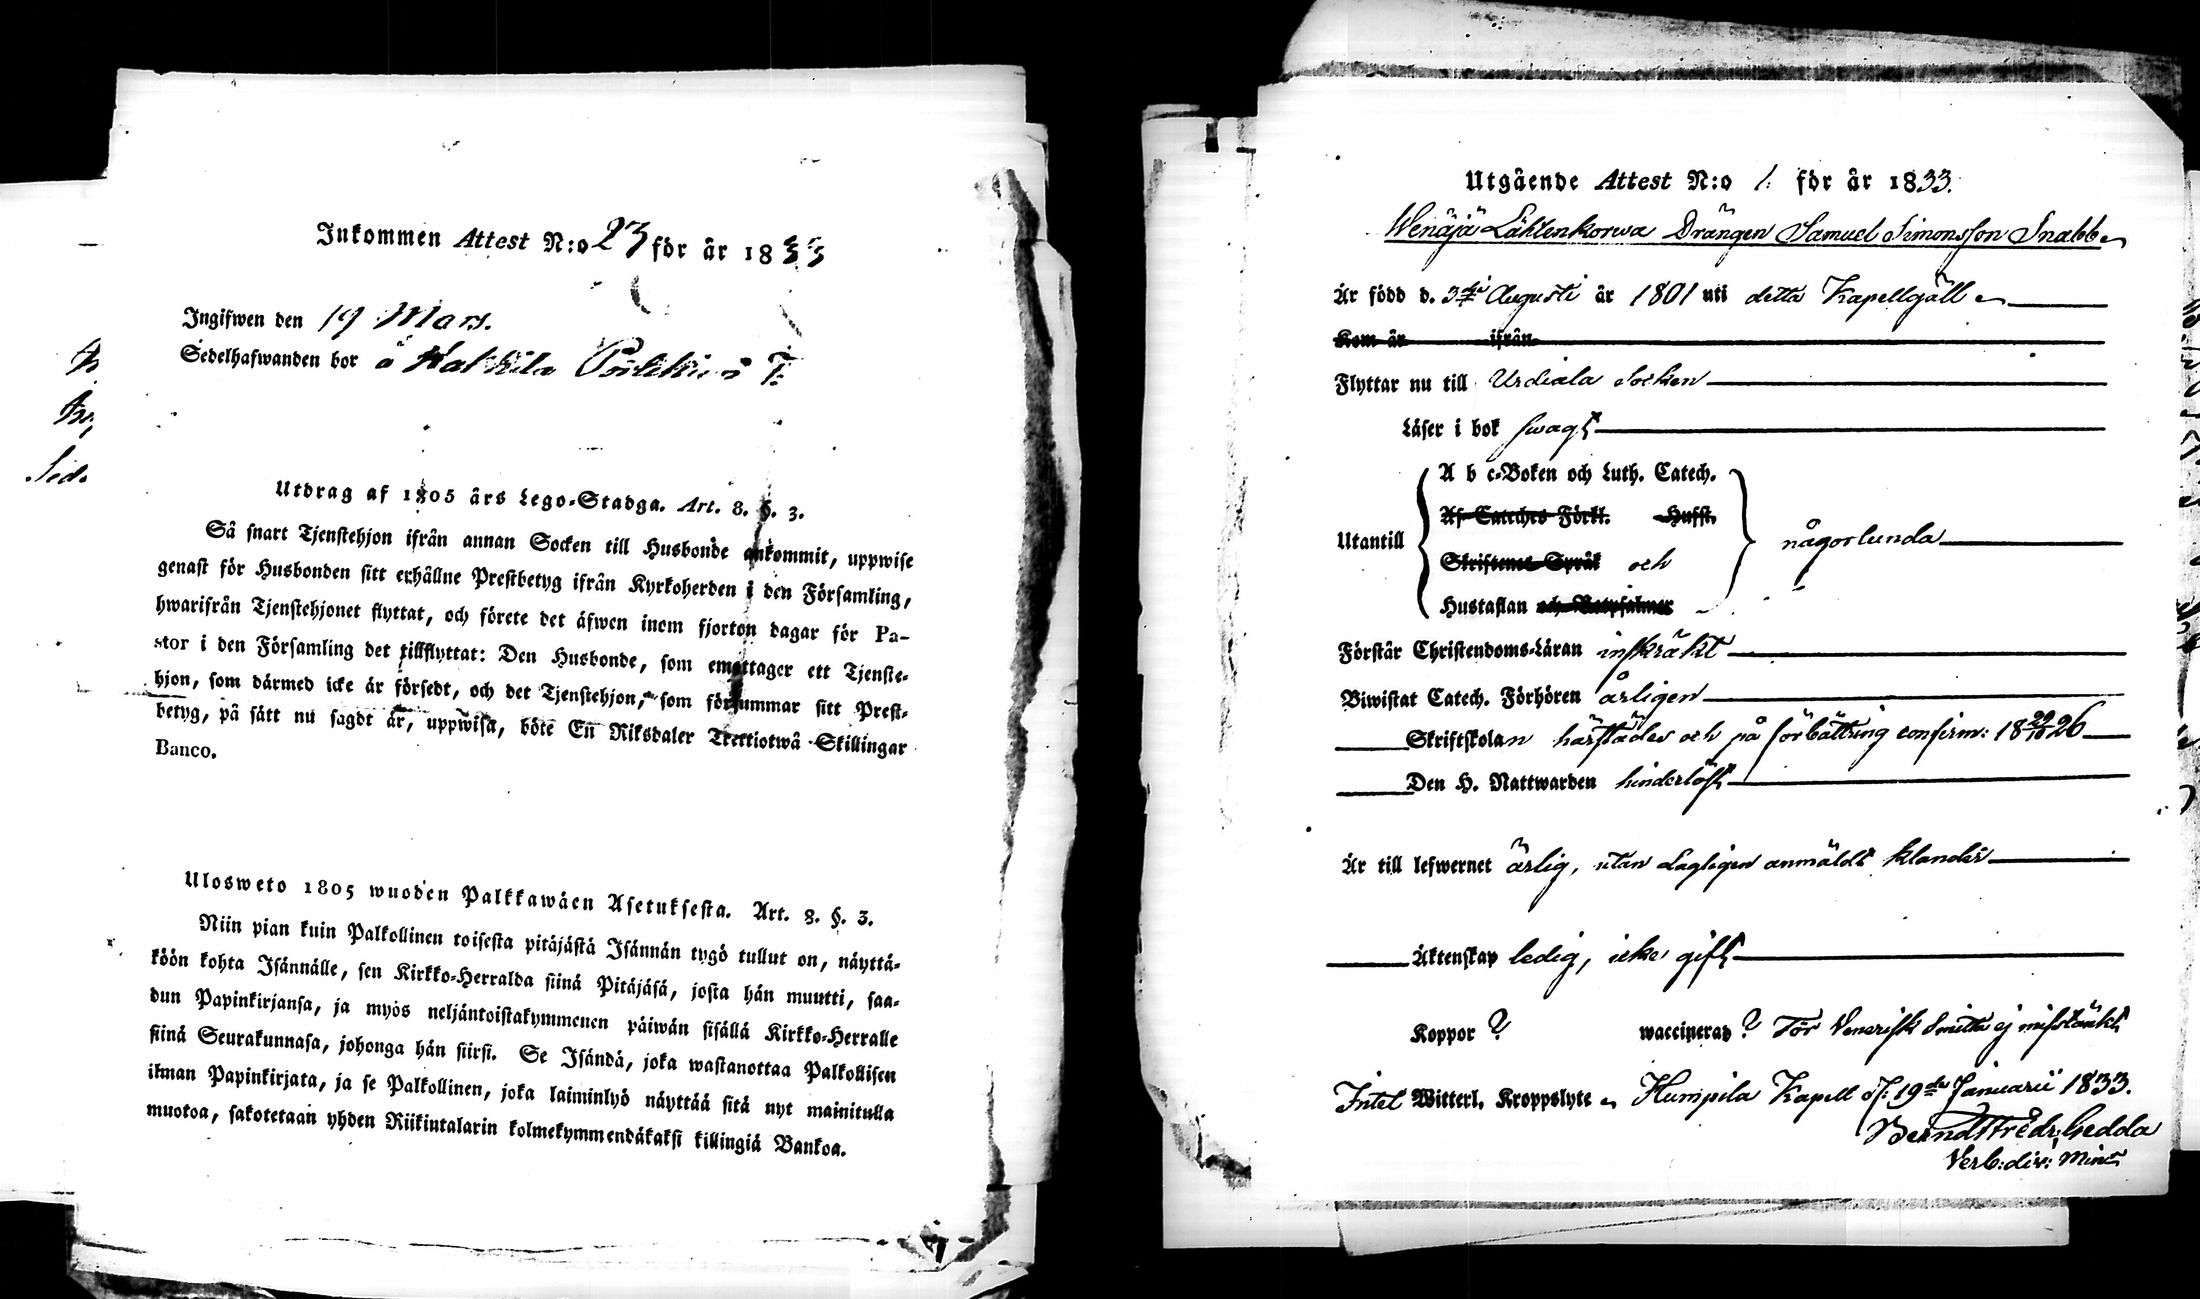 Inkommen Attest N:o 23 för år 1833
Ingifwen den 19 Mars.
Sedelhafwanden bor å
Sed.
Utdrag af 1805 års Lego-Stadga. Art. 8. §. 3.
Så snart Tjenstehjon ifrån annan Socken till Husbonde ankommit, uppwise
genast för Husbonden sitt erhållne Prestbetyg ifrån Kyrkoherden i den Församling,
hwarifrån Tjenstehjonet flyttat, och förete det äfwen inom fjorton dagar för Pa-
stor i den Församling det tillflyttat: Den Husbonde, som emottager ett Tjenste-
hjon, som därmed icke är försedt, och det Tjenstehjon, som försummar sitt Prest-
betyg, på sätt nu sagdt är, uppwisa, böte En Riksdaler Trettiotwå Skillingar
Banco.
Ulosweto 1805 wuoden Palkkawäen Asetuksesta. Art. 8. §. 3.
Niin pian kuin Palkollinen toisesta pitäjästä Isännän tygö tullut on, näyttä-
köön kohta Isännälle, sen Kirkko-Herralda siinä Pitäjäsä, josta hän muutti, saa-
dun Papinkirjansa, ja myös neljäntoistakymmenen päiwän sisällä Kirkko-Herralle
siinä Seurakunnasa, johonga hän siirsi. Se Isändä, joka wastanottaa Palkollisen
ilman Papinkirjata, ja se Palkollinen, joka laiminlyö näyttää sitä nyt mainitulla
muotoa, sakotetaan yhden Riikintalarin kolmekymmendäkaksi killingiä Bankoa.
Utgående Attest N:o 1. för år 1833.
Wenäjä Lähtenkorwa Drängen Samuel Simonsson Snabb
Är född d. 3die Augusti år 1801 uti detta Kapellgäll
Kom år ifrån
Flyttar nu till Urdiala Socken
Läser i bok swagt
A b c-Boken och Luth. Catech.
Af Cateches Förkl. Hufst.
Utantill någorlunda
Skriftenes Språk och
Hustaflan och Botpsalmer
Förstår Christendoms-Läran inskräkt
Biwistat Catech. Förhören årligen
Skriftskolan härstädes och på förbättring confirm: 18 29/10 26
Den H. Nattwarden hinderlöst
Är till lefwernet ärlig, utan lagligen anmäldt klander
Äktenskap ledig, icke gift
Koppor ? waccinerad ? För Venerisk Smitta ej misstänkt
Intet Witterl. Kroppslyte Humpila Kapell d: 19de Januarii 1833.
Berndt Fredr. Gedda
Verb: div: Minr